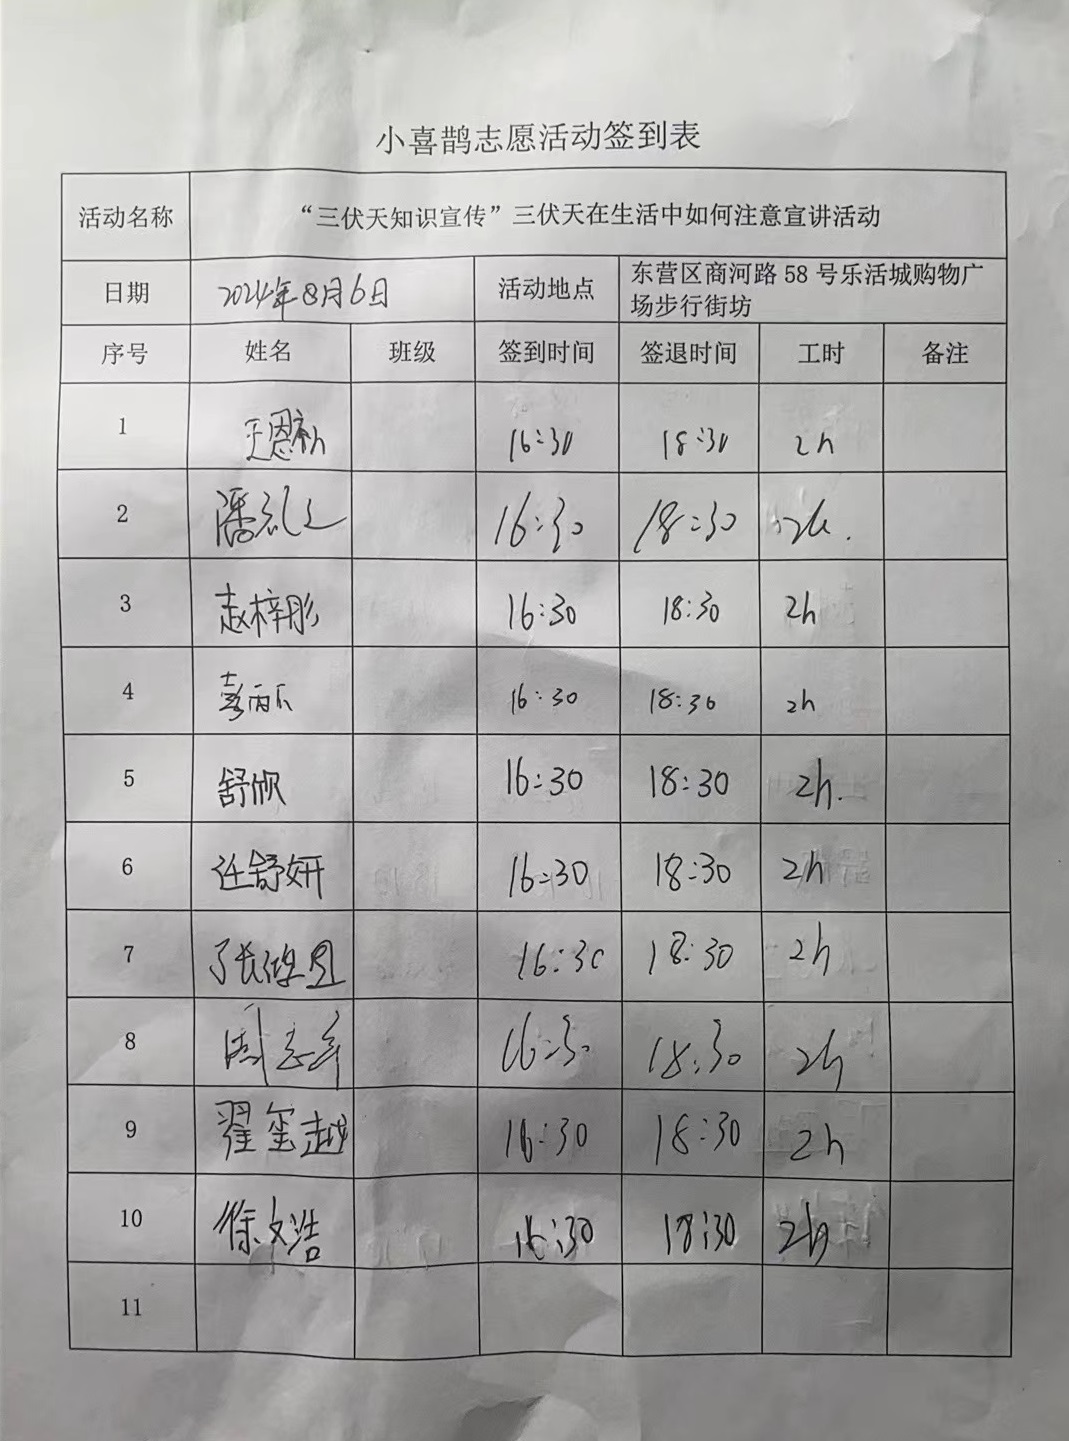 小喜鹊志愿活动签到表
活动名称 “三伏天知识宣传”三伏天在生活中如何注意宣讲活动
日期 2024年8月6日 活动地点 东营区商河路 58 号乐活城购物广
场步行街坊
序号 姓名 班级 签到时间 签退时间 工时 备注
1 王恩 16:30 18:30 2h
2 潘 16:30 18:30 2h.
3 赵梓彤 16:30 18:30 2h
4 彭丙 16:30 18:30 2h
5 舒帆 16:30 18:30 2h.
6 迁舒妍 16:30 18:30 2h
7 张 16:30 18:30 2h
8 周志 16:30 18:30 2h
9 翟玺越 16:30 18:30 2h
10 徐文浩 16:30 18:30 2h
11